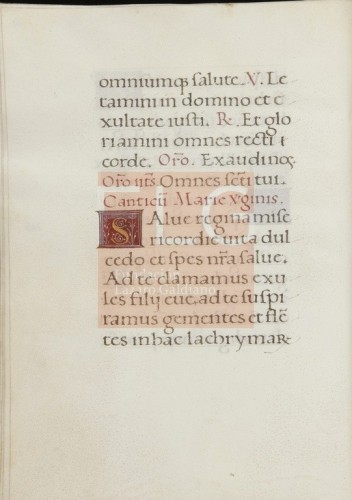 omniumq; salute. V. Le
tamini in domino et e
xultate iusti. R. Et glo
riamini omnes recti i
corde. Oro. Exaudi nos
Oro uts. Omnes scti tui.
Canticũ Marie xginis.
SAlue regina mise
ricordie uita dul
cedo et spes nra salue.
Ad te clamamus exu
les filij eue. ad te suspi
ramus gementes et flẽ
tes in hac lachrymar